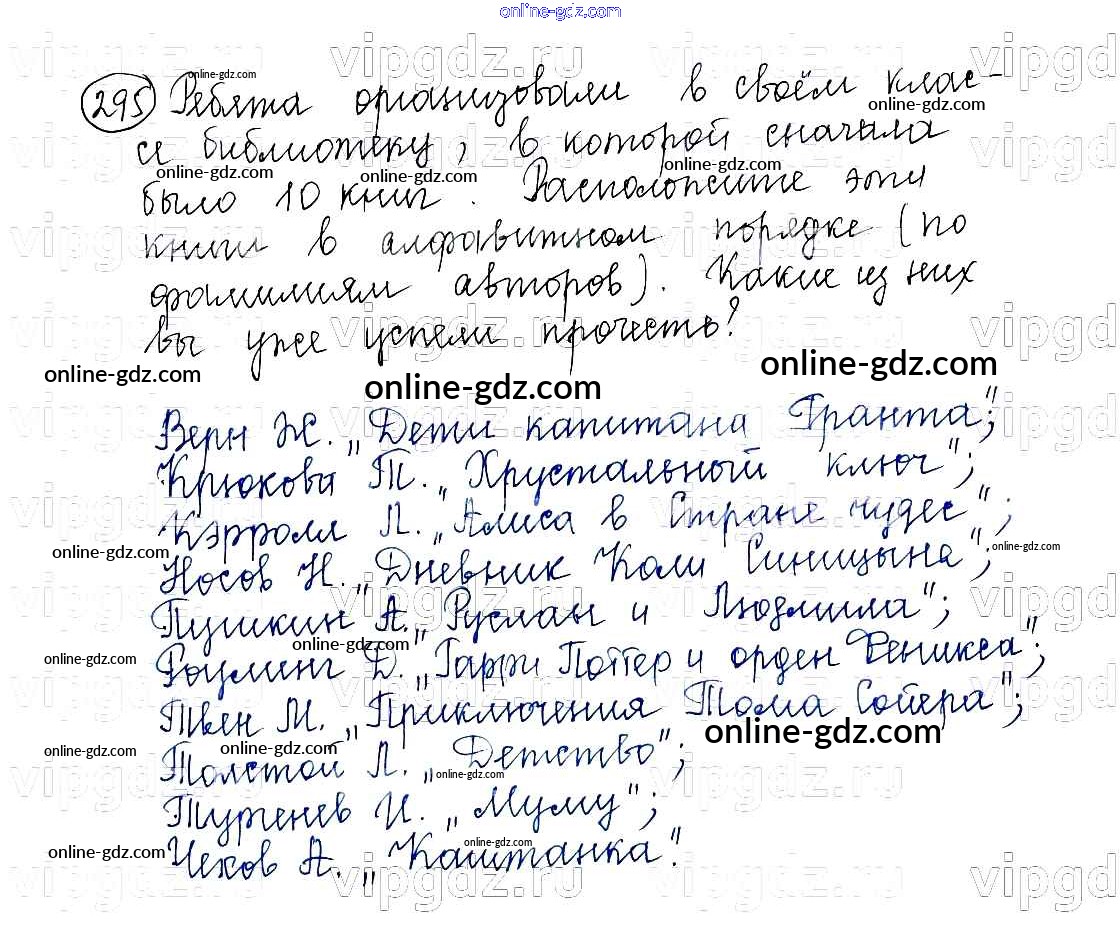 online-gdz.com
295 Ребята организовали в своём клас-
се библиотеку, в которой сначала
было 10 книг. Расположите эти
книги в алфавитном порядке (по
фамилиям авторов). Какие из них
вы уже успели прочесть?
Верн Ж. „Дети капитана Гранта";
Крюкова Т. „Хрустальный ключ";
Кэрролл Л. „Алиса в Стране чудес";
Носов Н. „Дневник Коли Синицына";
Пушкин А. „Руслан и Людмила";
Роулинг Д. „Гарри Поттер и орден Феникса";
Твен М. „Приключения Тома Сойера";
Толстой Л. „Детство";
Тургенев И. „Муму";
Чехов А. „Каштанка".